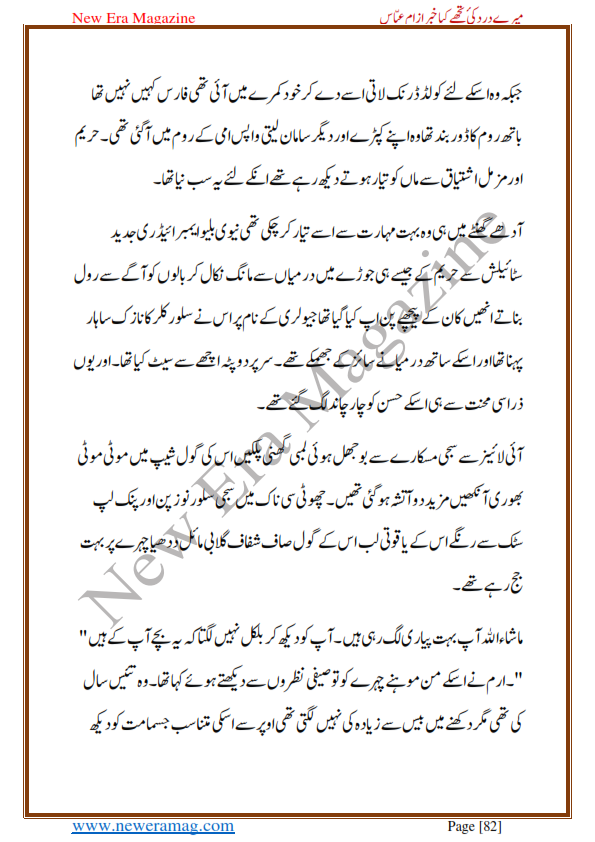 New Era Magazine
میرے درد کی تجھے کیا خبر از ام عبّاس
جبکہ وہ اسکے لئے کولڈ ڈرنک لاتی اسے دے کر خود کمرے میں آئی تھی فارس کہیں نہیں تھا
باتھ روم کا ڈور بند تھا وہ اپنے کپڑے اور دیگر سامان لیتی واپس امی کے روم میں آگئی تھی۔ حریم
اور مزمل اشتیاق سے ماں کو تیار ہوتے دیکھ رہے تھے انکے لئے یہ سب نیا تھا۔
آدھے گھنٹے میں ہی وہ بہت مہارت سے اسے تیار کر چکی تھی نیوی بلیو ایمبرائیڈری جدید
سٹائیلش سے حریم کے جیسے ہی جوڑے میں درمیاں سے مانگ نکال کر بالوں کو آگے سے رول
بناتے انھیں کان کے پیچھے پن اپ کیا گیا تھا جیولری کے نام پر اس نے سلور کلر کا نازک سا ہار
پہنا تھا اور اسکے ساتھ درمیانے سائز کے جھمکے تھے۔ سر پر دوپٹہ اچھے سے سیٹ کیا تھا۔ اور یوں
ذرا سی محنت سے ہی اسکے حسن کو چار چاند لگ گئے تھے۔
آئی لائینر سے سجی مسکارے سے بوجھل ہوئی لمبی گھنی پلکیں اس کی گول شیپ میں موٹی موٹی
بھوری آنکھیں مزید دو آتشہ ہو گئی تھیں۔ چھوٹی سی ناک میں سجی سلور نوز پن اور پنک لپ
سٹک سے رنگے اس کے یاقوتی لب اس کے گول صاف شفاف گلابی مائل دودھیا چہرے پر بہت
جچ رہے تھے۔
ماشاء اللہ آپ بہت پیاری لگ رہی ہیں۔ آپ کو دیکھ کر بلکل نہیں لگتا کہ یہ بچے آپ کے ہیں"
"۔ارم نے اسکے من موہنے چہرے کو توصیفی نظروں سے دیکھتے ہوئے کہا تھا۔ وہ تئیس سال
کی تھی مگر دکھنے میں بیس سے زیادہ کی نہیں لگتی تھی اوپر سے اسکی متناسب جسمامت کو دیکھ
New Era Magazine
www.neweramag.com
Page [82]